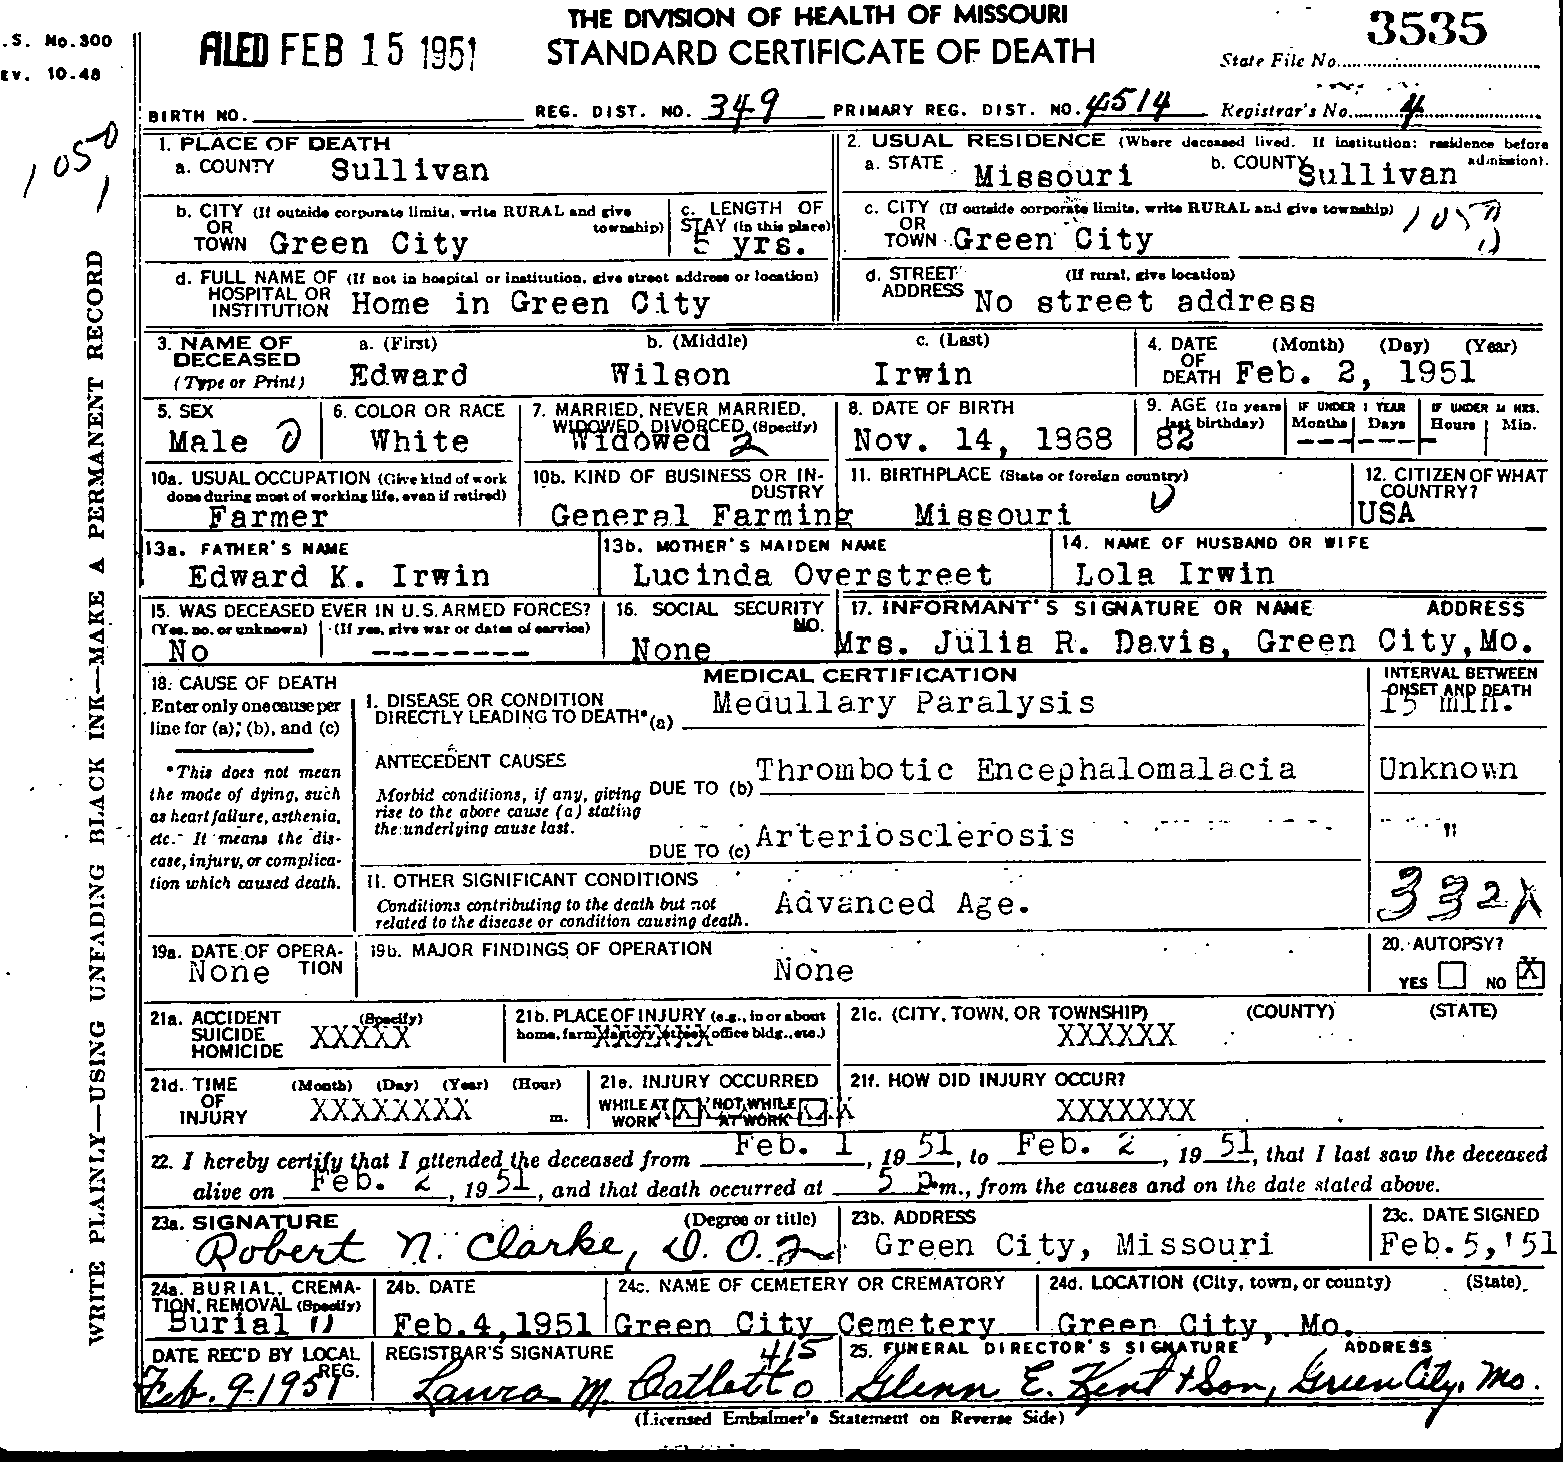 THE DIVISION OF HEALTH OF MISSOURI
STANDARD CERTIFICATE OF DEATH
.S. No.300
EV. 10-48
FILED FEB 15 1951
3535
State File No.
BIRTH NO. REG. DIST. NO. 349 PRIMARY REG. DIST. NO. 4514 Registrar's No. 4
1050
1
WRITE PLAINLY—USING UNFADING BLACK INK—MAKE A PERMANENT RECORD
1. PLACE OF DEATH
a. COUNTY Sullivan
2. USUAL RESIDENCE (Where deceased lived. If institution: residence before admission).
a. STATE Missouri b. COUNTY Sullivan
b. CITY (If outside corporate limits, write RURAL and give township)
OR
TOWN Green City
c. LENGTH OF STAY (in this place)
5 yrs.
c. CITY (If outside corporate limits, write RURAL and give township)
OR
TOWN Green City
d. FULL NAME OF (If not in hospital or institution, give street address or location)
HOSPITAL OR
INSTITUTION Home in Green City
d. STREET (If rural, give location)
ADDRESS No street address
3. NAME OF DECEASED a. (First) b. (Middle) c. (Last)
(Type or Print) Edward Wilson Irwin
4. DATE (Month) (Day) (Year)
OF
DEATH Feb. 2, 1951
5. SEX
Male
6. COLOR OR RACE
White
7. MARRIED, NEVER MARRIED, WIDOWED, DIVORCED (Specify)
Widowed 2
8. DATE OF BIRTH
Nov. 14, 1868
9. AGE (In years last birthday)
82
IF UNDER 1 YEAR
Months Days
IF UNDER 24 HRS.
Hours Min.
10a. USUAL OCCUPATION (Give kind of work done during most of working life, even if retired)
Farmer
10b. KIND OF BUSINESS OR INDUSTRY
General Farming
11. BIRTHPLACE (State or foreign country)
Missouri
12. CITIZEN OF WHAT COUNTRY?
USA
13a. FATHER'S NAME
Edward K. Irwin
13b. MOTHER'S MAIDEN NAME
Lucinda Overstreet
14. NAME OF HUSBAND OR WIFE
Lola Irwin
15. WAS DECEASED EVER IN U.S. ARMED FORCES?
(Yes, no, or unknown) (If yes, give war or dates of service)
No --------
16. SOCIAL SECURITY NO.
None
17. INFORMANT'S SIGNATURE OR NAME ADDRESS
Mrs. Julia R. Davis, Green City, Mo.
18. CAUSE OF DEATH
Enter only one cause per line for (a), (b), and (c)
*This does not mean the mode of dying, such as heart failure, asthenia, etc. It means the disease, injury, or complication which caused death.
MEDICAL CERTIFICATION
INTERVAL BETWEEN ONSET AND DEATH
I. DISEASE OR CONDITION
DIRECTLY LEADING TO DEATH*(a) Medullary Paralysis 15 min.
ANTECEDENT CAUSES
Morbid conditions, if any, giving rise to the above cause (a) stating the underlying cause last.
DUE TO (b) Thrombotic Encephalomalacia Unknown
DUE TO (c) Arteriosclerosis "
II. OTHER SIGNIFICANT CONDITIONS
Conditions contributing to the death but not related to the disease or condition causing death.
Advanced Age.
332X
19a. DATE OF OPERATION
None
19b. MAJOR FINDINGS OF OPERATION
None
20. AUTOPSY?
YES NO X
21a. ACCIDENT (Specify)
SUICIDE
HOMICIDE XXXXX
21b. PLACE OF INJURY (e.g., in or about home, farm, factory, street, office bldg., etc.)
21c. (CITY, TOWN, OR TOWNSHIP) (COUNTY) (STATE)
XXXXXX
21d. TIME (Month) (Day) (Year) (Hour)
OF
INJURY XXXXXXXX m.
21e. INJURY OCCURRED
WHILE AT WORK NOT WHILE AT WORK
21f. HOW DID INJURY OCCUR?
XXXXXXX
22. I hereby certify that I attended the deceased from Feb. 1, 1951, to Feb. 2, 1951, that I last saw the deceased
alive on Feb. 2, 1951, and that death occurred at 5 P m., from the causes and on the date stated above.
23a. SIGNATURE (Degree or title)
Robert N. Clarke, D.O.
23b. ADDRESS
Green City, Missouri
23c. DATE SIGNED
Feb. 5, '51
24a. BURIAL, CREMATION, REMOVAL (Specify)
Burial
24b. DATE
Feb. 4, 1951
24c. NAME OF CEMETERY OR CREMATORY
Green City Cemetery
24d. LOCATION (City, town, or county) (State)
Green City, Mo.
DATE REC'D BY LOCAL REG.
Feb. 9-1951
REGISTRAR'S SIGNATURE 415
Laura M. Catlett
25. FUNERAL DIRECTOR'S SIGNATURE ADDRESS
Glenn E. Kent & Son, Green City, Mo.
(Licensed Embalmer's Statement on Reverse Side)